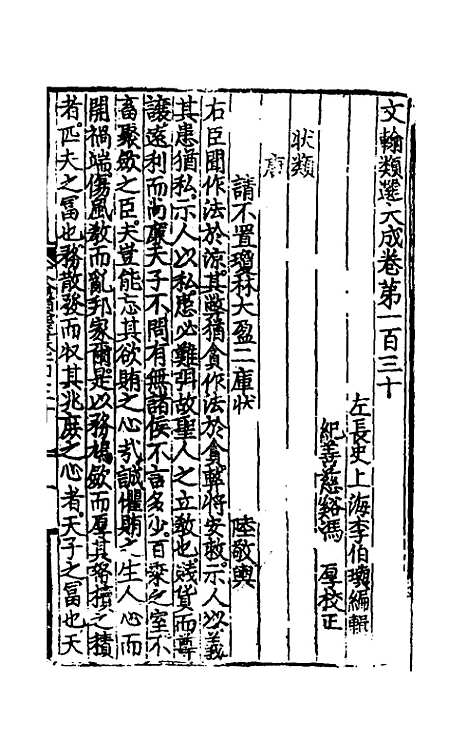 文翰類選大成卷第一百三十
左長史上海李伯璵編輯
紀善慈谿馮 厚校正
狀類
唐
請不置瓊林大盈二庫狀 陸敬輿
右臣聞作法於涼其弊猶貪作法於貪弊將安救示人以義
其患猶私示人以私患必難弭故聖人之立教也賤貨而尊
讓遠利而尚廉天子不問有無諸侯不言多少百乘之室不
畜聚斂之臣夫豈能忘其欲賄之心哉誠懼賄之生人心而
開禍端傷風教而亂邦家爾是以務鳩斂而厚其帑櫝之積
者匹夫之富也務散發而收其兆庶之心者天子之富也天